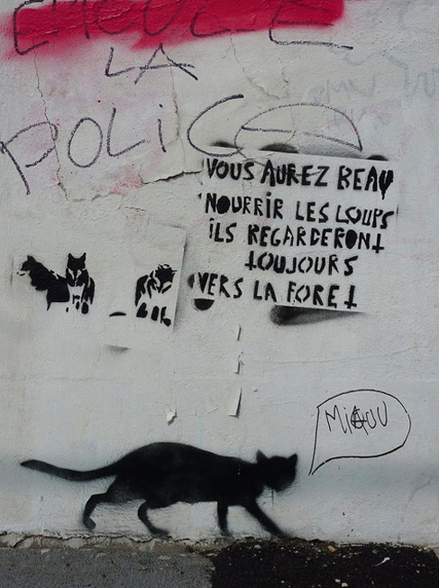 ENCULE
LA
POLICE
VOUS AUREZ BEAU
NOURRIR LES LOUPS
ILS REGARDERONT
TOUJOURS
VERS LA FORET
MiAUU